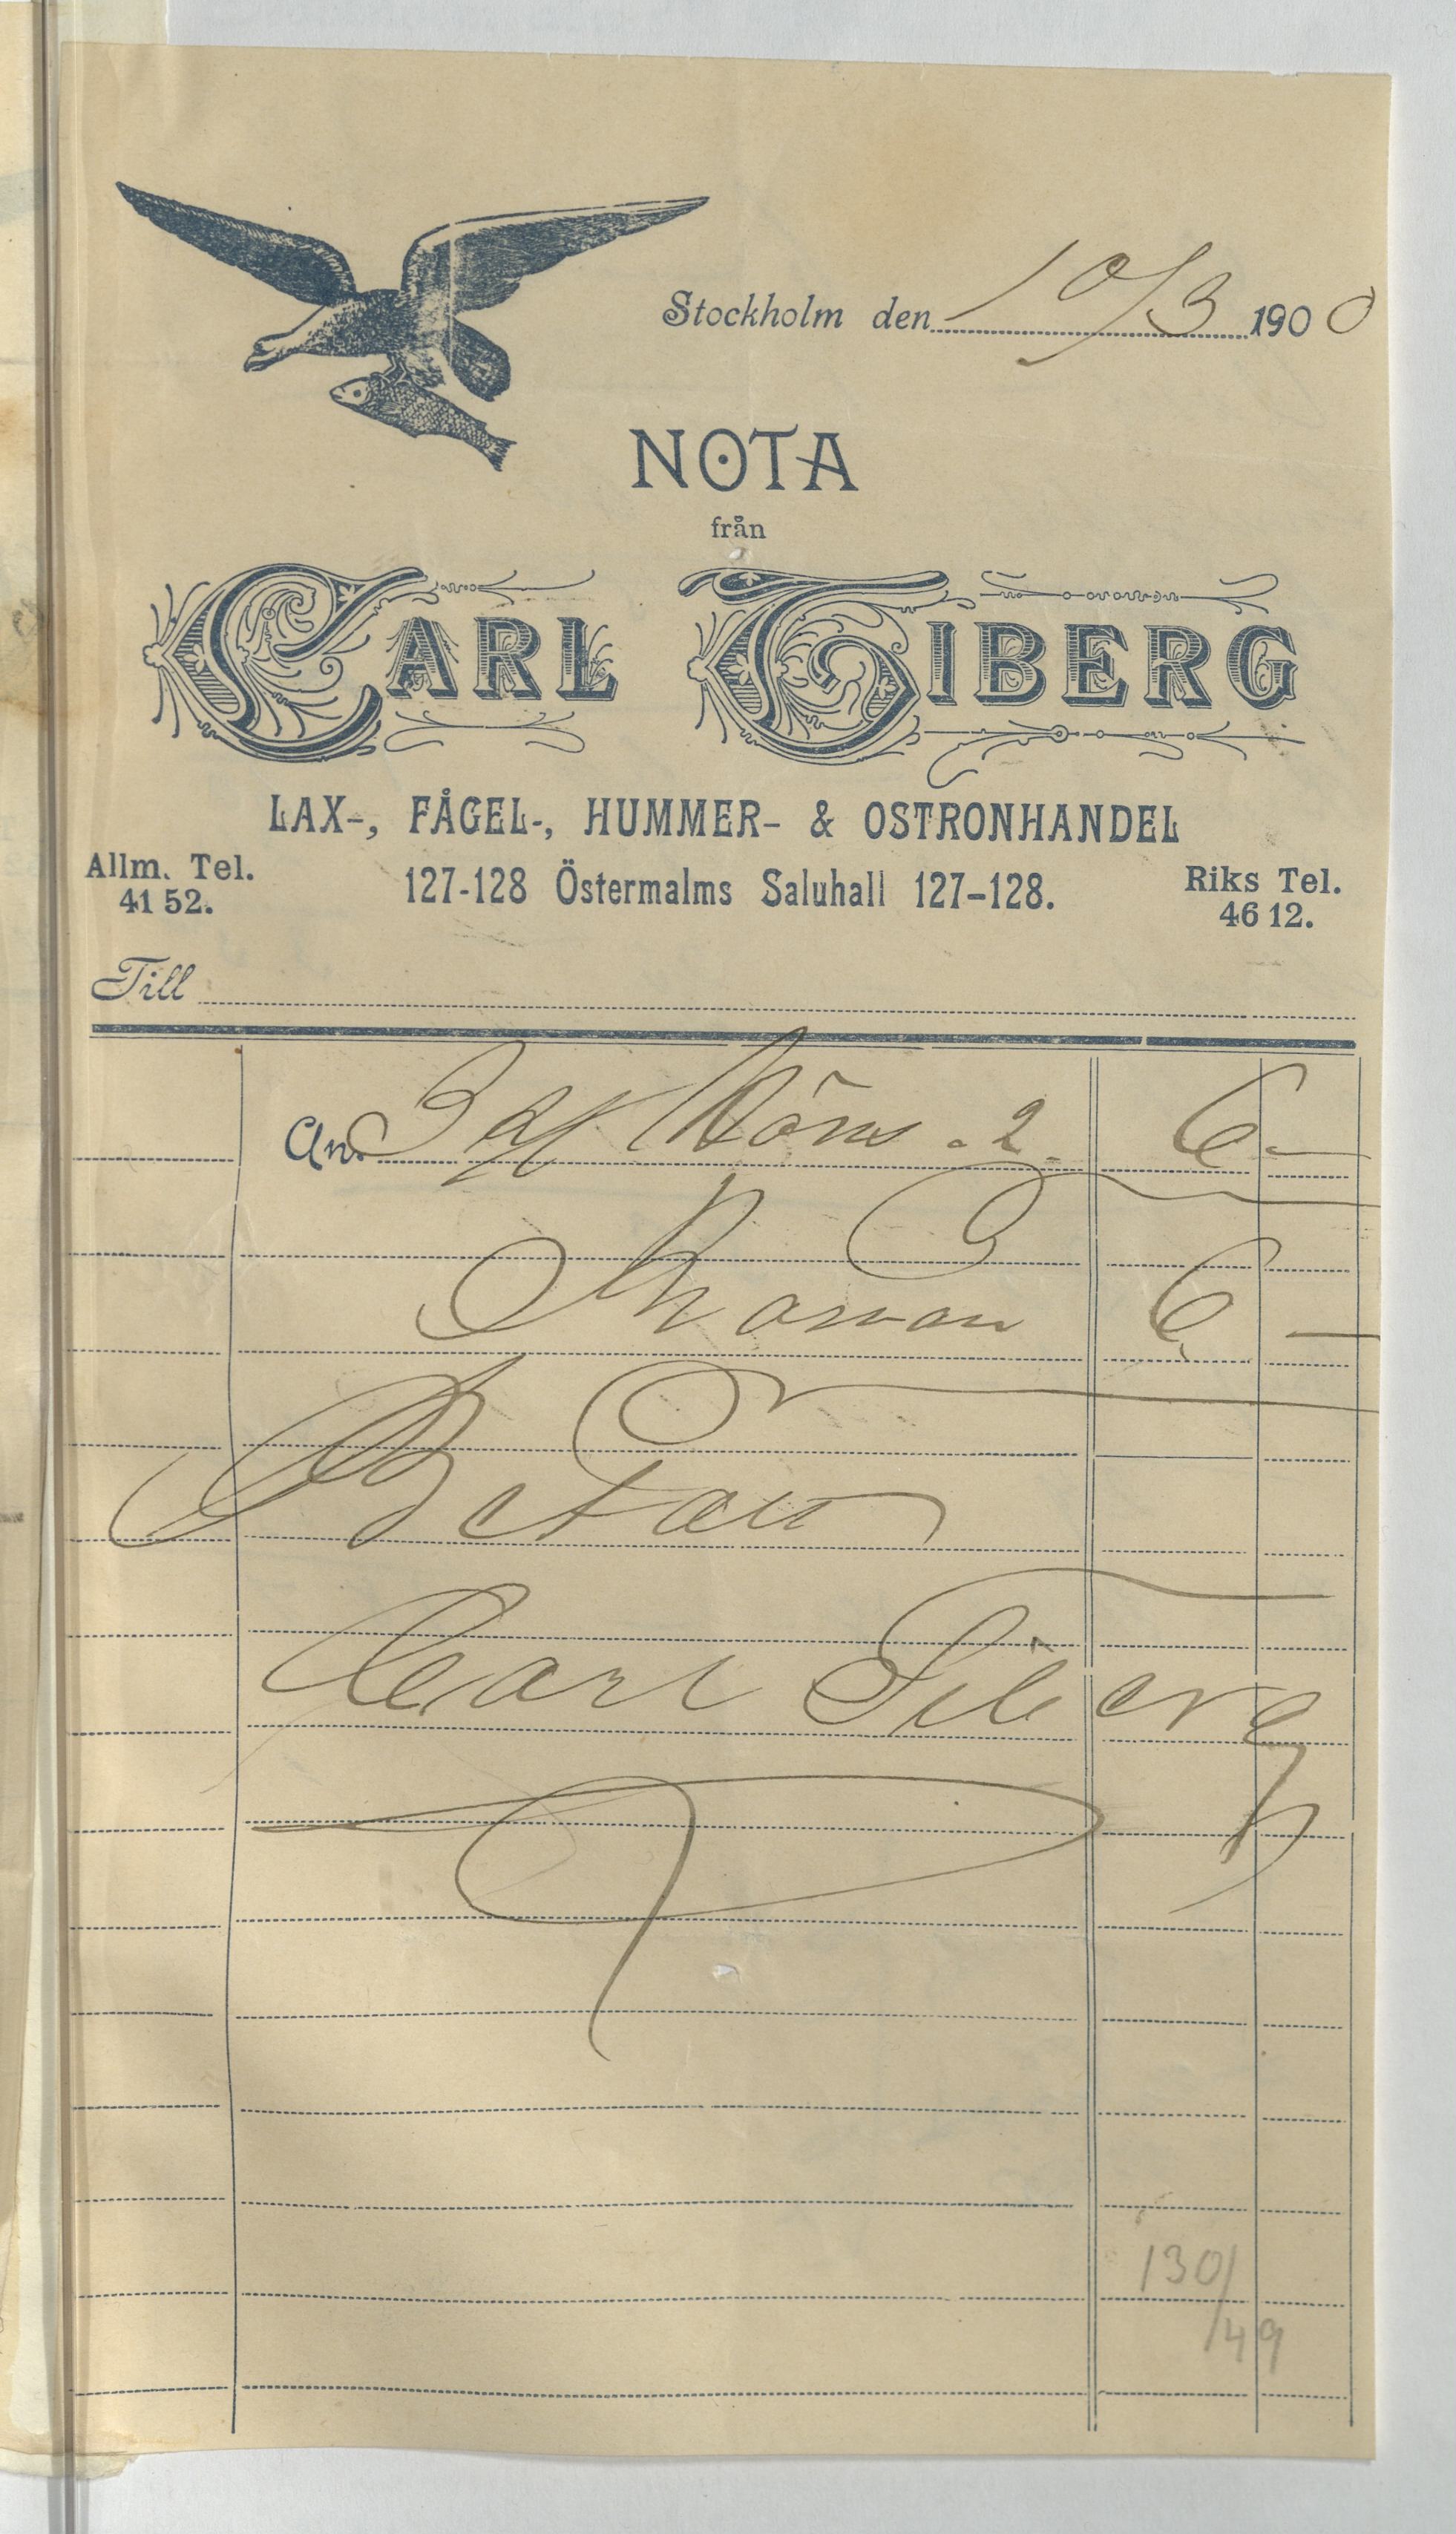 Stockholm den 10/3 1900
NOTA
från
CARL TIBERG
LAX-, FÅGEL-, HUMMER- & OSTRONHANDEL
Allm. Tel.
41 52.
127-128 Östermalms Saluhall 127-128.
Riks Tel.
46 12.
Till
An 3 Höns . 2. 6 -
Kronor 6 -
Betalt
Carl Tiberg
130/
149